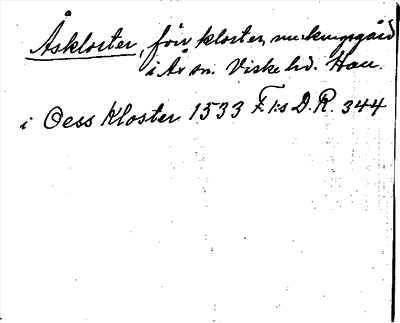 Åskloster, förr kloster, nu kungsgård
i Ås sn. Viske hd. Hall.
i Oess Kloster 1533 F I:s D.R. 344